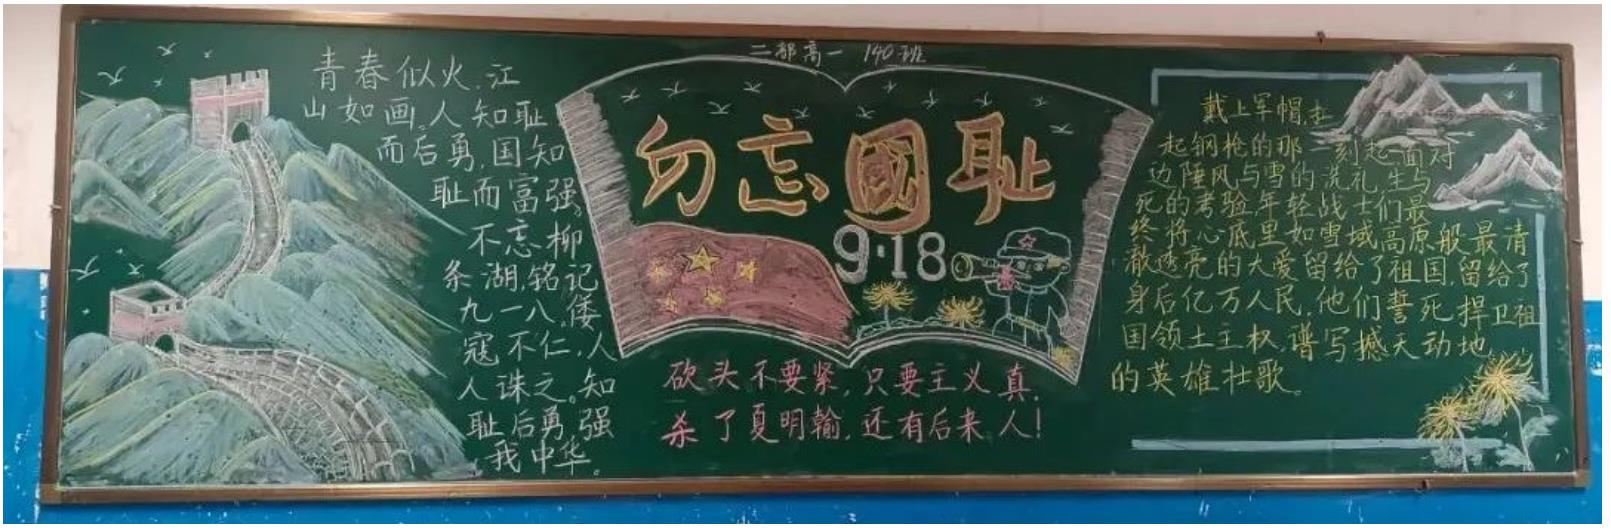 青春似火,江
山如画。人知耻
而后勇,国知
耻而富强。
不忘柳
条湖,铭记
九一八,倭
寇不仁,人
人诛之。知
耻后勇,强
我中华。
二部高一 140班
勿忘國耻
9·18
砍头不要紧,只要主义真,
杀了夏明输,还有后来人!
戴上军帽,扛
起钢枪的那一刻起,面对
边陲风与雪的洗礼,生与
死的考验,年轻战士们最
终将心底里如雪域高原般最清
澈透亮的大爱留给了祖国,留给了
身后亿万人民,他们誓死捍卫祖
国领土主权,谱写撼天动地
的英雄壮歌。